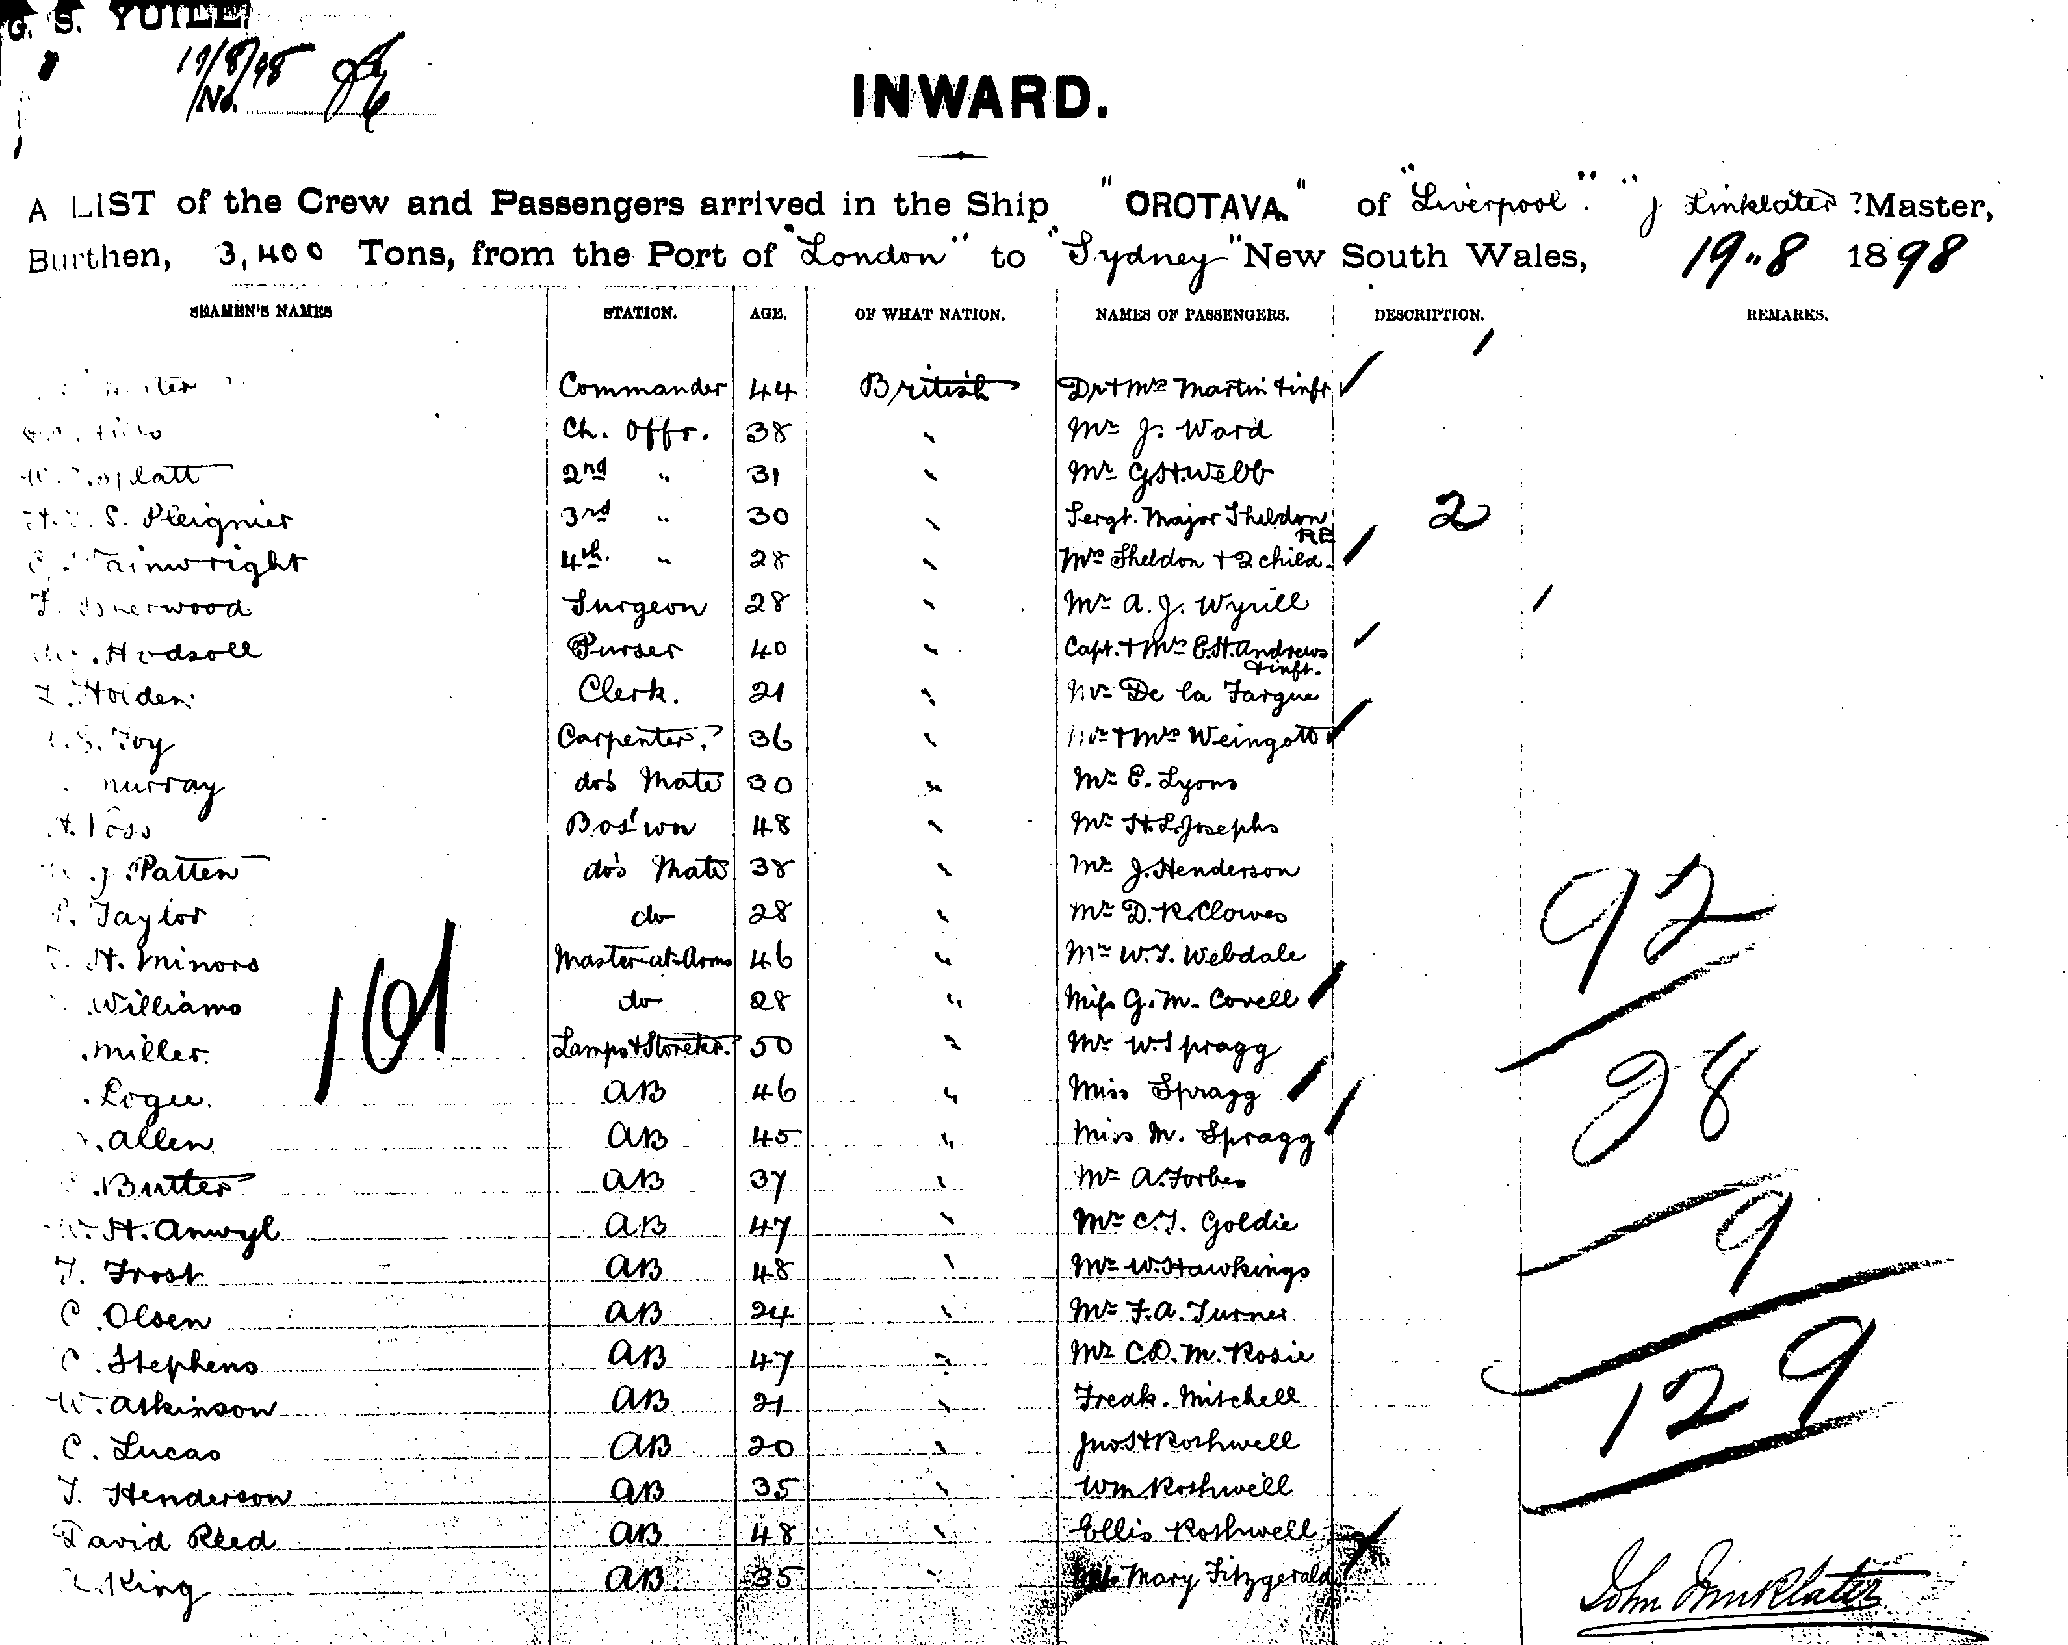 G. S. YUILL
19/8/98
No.
INWARD.
A LIST of the Crew and Passengers arrived in the Ship "OROTAVA" of "Liverpool". "J Linklater" Master,
Burthen, 3,400 Tons, from the Port of "London" to "Sydney" New South Wales, 19"8 1898
SEAMEN'S NAMES STATION. AGE. OF WHAT NATION. NAMES OF PASSENGERS. DESCRIPTION. REMARKS.
Commander 44 British Dr + Mrs Martin + inft
Ch. Offr. 38 " Mr J. Ward
2nd " 31 " Mr G.H. Webb
S. Pleignier 3rd " 30 " Sergt. Major Sheldon RE 2
Wainwright 4th. " 28 " Mrs Sheldon + 2 child.
Isherwood Surgeon 28 " Mr A. J. Wyrill
Hodsoll Purser 40 " Capt. + Mrs E.H. Andrews + inft.
Holden Clerk. 21 " Mr De la Fargue
Toy Carpenter. 36 " Mr + Mrs Weingott
Murray do's Mate 30 " Mr E. Lyons
Voss Bos'wn 48 " Mr H.L. Josephs
J. Patten do's Mate 38 " Mr J. Henderson
Taylor do 28 " Mr D. R. Clowes
H. Minors Master-at-Arms 46 " Mr W.T. Webdale
Williams do 28 " Miss G. M. Covell
Miller Lamps + Storekr. 50 " Mr W. Spragg
Logie. AB 46 " Miss Spragg
Allen AB 45 " Miss M. Spragg
Butter AB 37 " Mr A. Forbes
H. Anwyl AB 47 " Mr C.T. Goldie
T. Frost AB 48 " Mr W. Hawkings
C. Olsen AB 24 " Mr F. A. Turner
C. Stephens AB 47 " Mr C.D. M. Rosie
W. Atkinson AB 21 " Fredk. Mitchell
C. Lucas AB 20 " Jno St Rothwell
T. Henderson AB 35 " Wm Rothwell
David Reed AB 48 " Ellis Rothwell
King AB 35 " Mary Fitzgerald
101
92
28
9
129
John Linklater